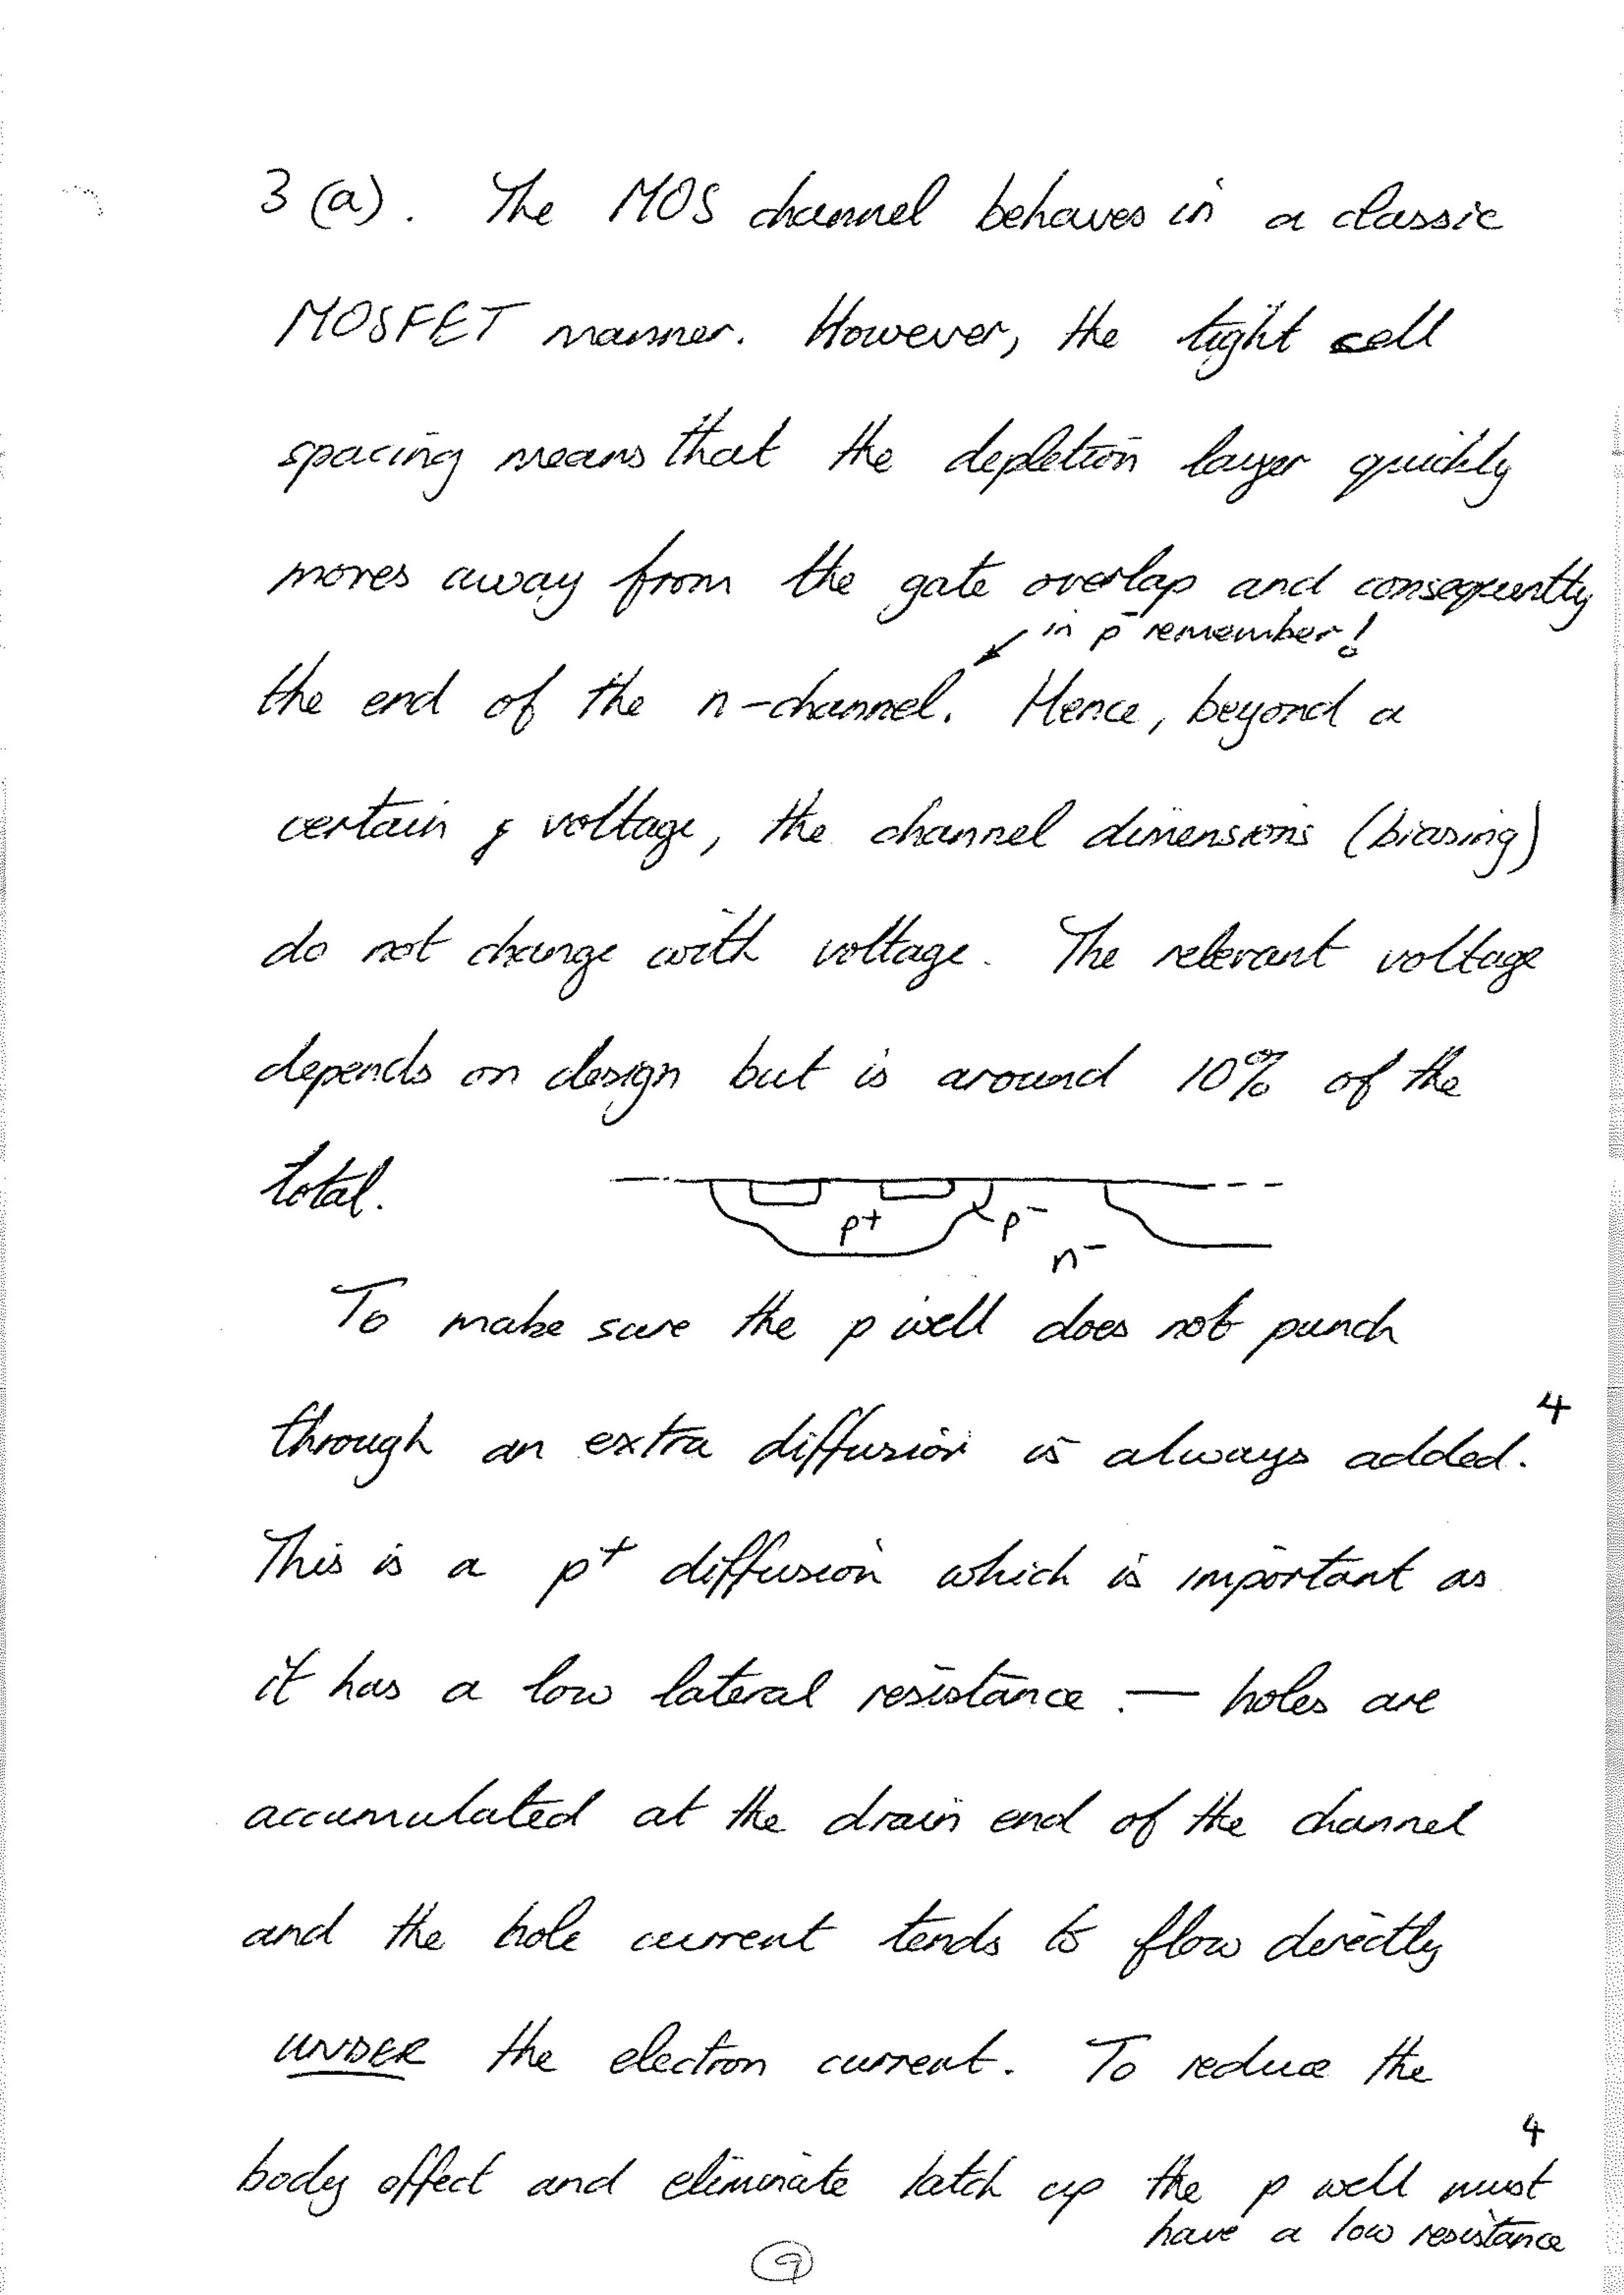 3 (a). The MOS channel behaves in a classic
MOSFET manner. However, the tight cell
spacing means that the depletion layer quickly
moves away from the gate overlap and consequently
in p⁻ remember!
the end of the n-channel. Hence, beyond a
certain voltage, the channel dimensions (biasing)
do not change with voltage. The relevant voltage
depends on design but is around 10% of the
total.
p⁺ p⁻
n⁻
To make sure the p well does not punch
4
through an extra diffusion is always added.
This is a p⁺ diffusion which is important as
it has a low lateral resistance. — holes are
accumulated at the drain end of the channel
and the hole current tends to flow directly
UNDER the electron current. To reduce the
4
body effect and eliminate latch up the p well must
have a low resistance
9